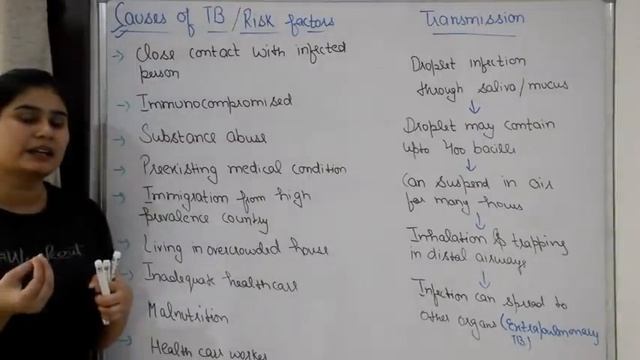 Causes of TB / Risk factors
→ Close contact with infected
person
→ Immunocompromised
→ Substance abuse
→ Preexisting medical condition
→ Immigration from high
prevalence country
→ Living in overcrowded house
→ Inadequate healthcare
Malnutrition
Health care worker
Transmission
Droplet infection
through saliva/mucus
↓
Droplet may contain
upto 400 bacilli
↓
Can suspend in air
for many hours
↓
Inhalation & trapping
in distal airways
↓
Infection can spread to
other organs (Extrapulmonary
TB)